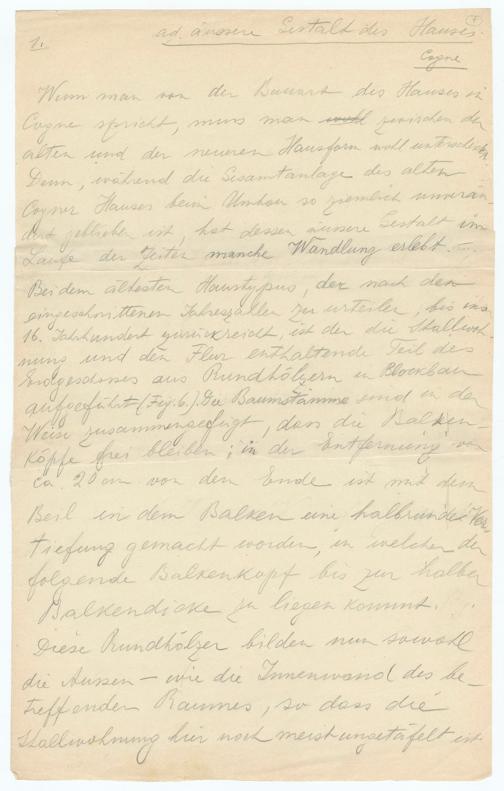 1. ad. äussere Gestalt des Hauses.
Cogne
Wenn man von der Bauart des Hauses in
Cogne spricht, muss man wohl zwischen der
alten und der neueren Hausform wohl unterscheiden.
Denn, während die Gesamtanlage des alten
Cogner Hauses beim Umbau so ziemlich unverän-
dert geblieben ist, hat dessen äussere Gestalt im
Laufe der Zeiten manche Wandlung erlebt. —
Bei dem ältesten Haustypus, der nach den
eingeschnittenen Jahreszahlen zu urteilen, bis ins
16. Jahrhundert zurückreicht, ist der die Stallwoh-
nung und den Flur enthaltende Teil des
Erdgeschosses aus Rundhölzern in Blockbau
aufgeführt (Fig. 6.). Die Baumstämme sind in der
Weise zusammengefügt, dass die Balken-
köpfe frei bleiben; in der Entfernung von
ca. 20 cm von dem Ende ist mit dem
Beil in dem Balken eine halbrunde Ver-
tiefung gemacht worden, in welcher der
folgende Balkenkopf bis zur halben
Balkendicke zu liegen kommt.
Diese Rundhölzer bilden nun sowohl
die Aussen- wie die Innenwand des be-
treffenden Raumes, so dass die
Stallwohnung hier noch meist ungetäfelt ist